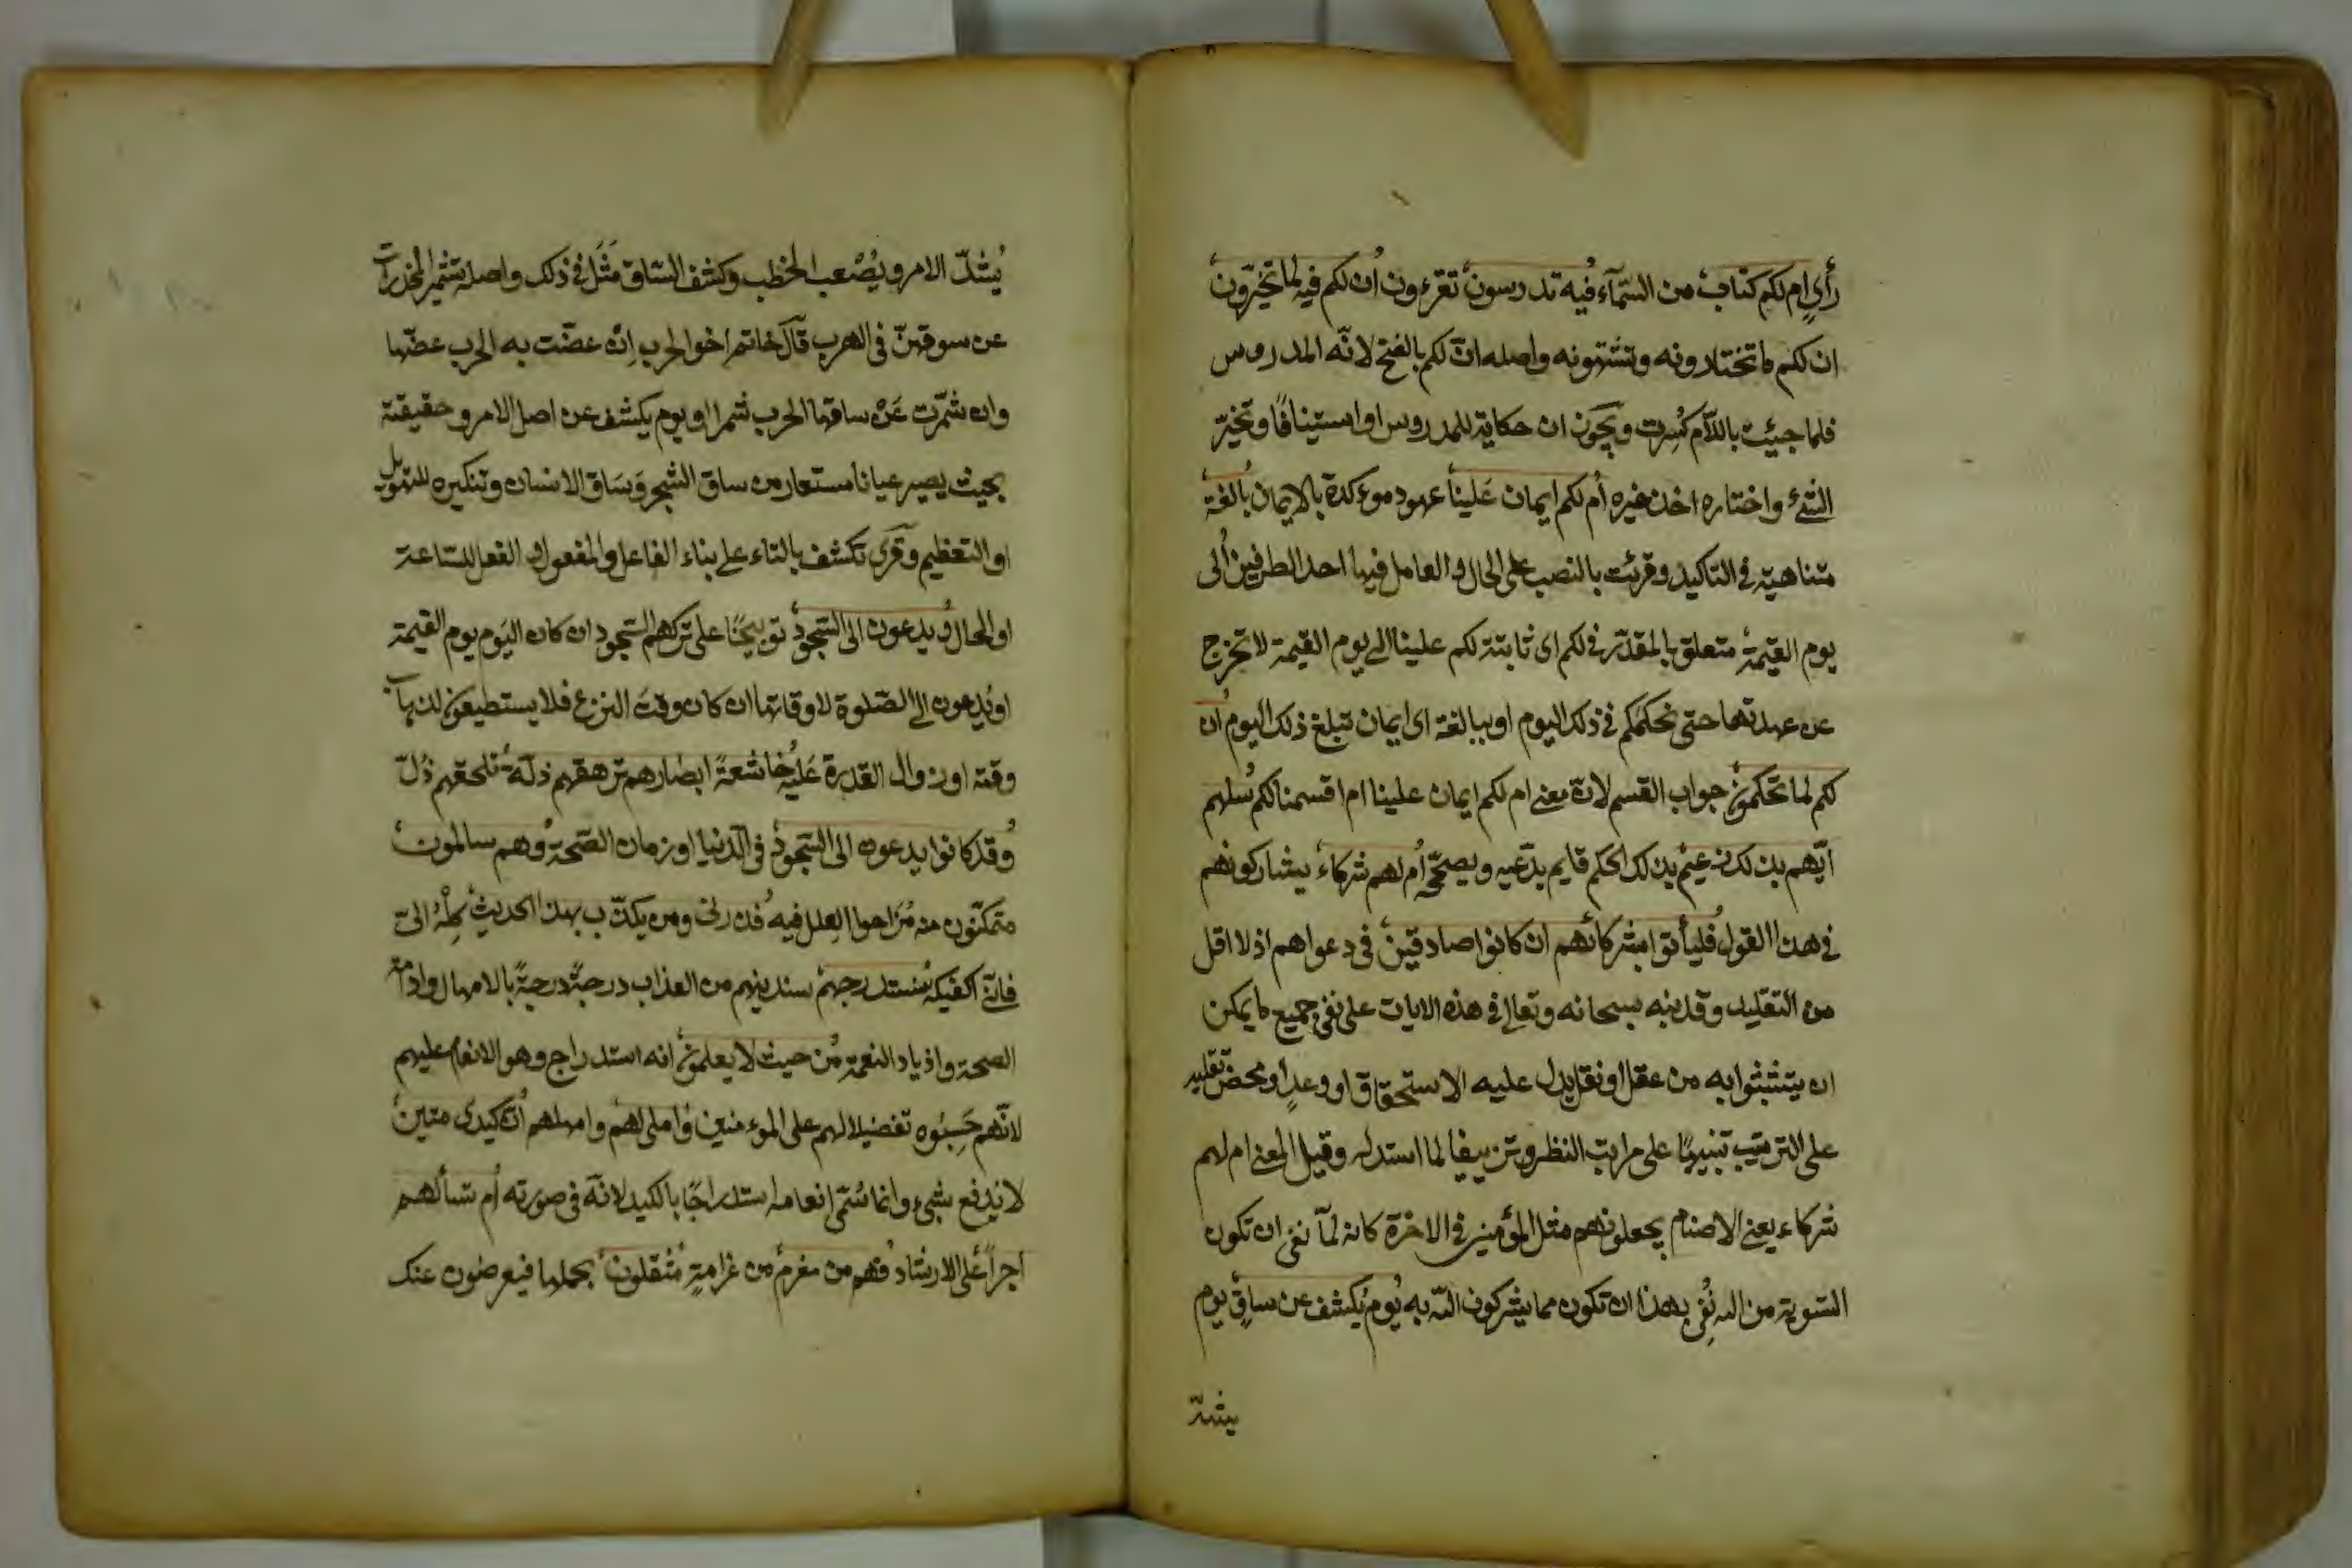 رأيٍ ام لكم كتاب من السّمآء فيه تدرسون تقرءون ان لكم فيه لما تخيّرون
ان لكم ما تختارونه وتشتهونه واصله انّ لكم بالفتح لانّه المدروس
فلما جيئت باللّام كُسِرت ويجوز ان حكاية للمدروس او استينافًا وتخيّر
الشئ واختاره اخذ خيره أم لكم ايمان عَلينا عهود موءكدة بالايمان بالغة
متناهية في التاكيد وقرئت بالنصب على الحال والعامل فيها احد الطرفين الى
يوم القيمة متعلق بالمقدّر في لكم اى ثابتة لكم علينا الى يوم القيمة لا تخرج
عن عهدتهما حتى نحكمكم في ذلك اليوم او ببالغة اى ايمان تبلغ ذلك اليوم ان
لكم لما تحكمون جواب القسم لانّ معنى ام لكم ايمان علينا ام اقسمنا لكم سلهم
ايّهم بذلك زعيم بذلك الحكم قايم يدّعيه ويصحّحه أم لهم شركاء يشاركونهم
في هذا القول فليأتوا بشركائهم ان كانوا صادقين في دعواهم اذ لا اقل
من التقليد وقد نبه سبحانه وتعالى في هذه الايات على نفى جميع ما يمكن
ان يتشبثوا به من عقل او نقل يدل عليه الاستحقاق او وعدٍ او محض تقليد
على الترتيب تنبيهًا على مراتب النظر وتزييفا لما استدله وقيل المعنى ام لهم
شركاء يعنى الاصنام يجعلونهم مثل المؤمنين في الاخرة كانه لمّا نفى ان تكون
السّوية من الله نُفِى بهذا ان تكون مما يشركون اللّه به يوم يكشف عن ساقٍ يوم
يشدّ
يُشدّ الامر ويُصْعب الخطب وكشف السّاق مَثَل في ذلك واصله تشمير المخدرات
عن سوقهنّ في الهرب قال حاتم اخو الحرب اِنْ عضّت به الحرب عضّها
وان شمّرت عَنْ ساقها الحرب شمرا او يوم يكشف عن اصل الامر وحقيقتة
بحيث يصير عيانا مستعار من ساق الشجر وَسَاق الانسان وتنكيره للتهويل
او التعظيم وقرئ تكشف بالتاء على بناء الفاعل والمفعول او الفعل للسّاعة
او الحال ويدعون الى السّجود توبيخًا على تركهم السّجود ان كان اليَوم يوم القيمة
او يُدعون الى الصّلوة لاوقاتها ان كان وقت النزع فلا يستطيعون لذهاب
وقته او زوال القدرة عَليه خاشعةً ابصارهم ترهقهم ذلّة تلحقهم ذُلّ
وقد كانوا يدعون الى السّجود في الدّنيا او زمان الصّحة وهم سالمون
متمكّنون منه مُزَاحوا العِلل فيه فذرنى ومن يكذّب بهذا الحديث كِلْهُ الىّ
فانّى اكفيكه سنستدرجهم سندنيهم من العذاب درجةً درجةً بالامهال وادامة
الصحة وازدياد النعمة من حيث لا يعلمون انه استدراج وهو الانعام عليهم
لانّهم حَسِبُوه تفضيلا لهم على الموءمنين واملى لهم وامهلهم انّ كيدى متين
لا يُدفع بشىء وانما سُمّى انعامه استدراجًا بالكيد لانّه في صورته أم تسألهم
اجراً على الارشاد فهم من مغرم من غرامةٍ مُثقلون بحملها فيعرضون عنك